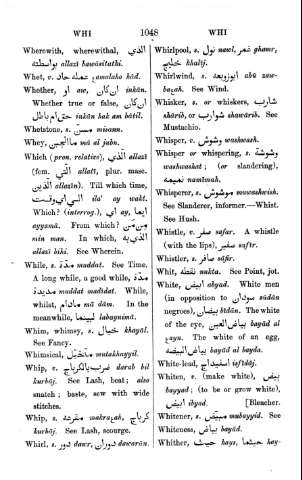 WHI 1048 WHI
Wherewith, wherewithal, الذي
بواسطته allazī bawāsitathi.
Whet, v. عمله حاد amalaha hād.
Whether, او aw, ان كان inkān.
Whether true or false, ان كان
حق ام باطل inkān hak am bātil.
Whetstone, s. مسن misann.
Whey, ماء الجبن mā al jabn.
Which (pron. relative), الذي allazī
(fem. التي allatī, plur. masc.
الذين allazīn). Till which time,
الى اي وقت ila' ay wakt.
Which? (interrog.), اي ay, ايما
ayyumā. From which? من من
min man. In which, الذي به
allazī bihi. See Wherein.
While, s. مدة muddat. See Time.
A long while, a good while, مدة
مديدة muddat madīdat. While,
whilst, مادام mā dām. In the
meanwhile, لبينما labaynimā.
Whim, whimsy, s. خيال khayāl.
See Fancy.
Whimsical, متخيل mutakhayyil.
Whip, v. ضرب بالكرباج darab bil
kurbāj. See Lash, beat; also
snatch; baste, sew with wide
stitches.
Whip, s. مقرعة makraah, كرباج
kurbāj. See Lash, scourge.
Whirl, s. دور dawr, دوران dawarān.
Whirlpool, s. نول nawl, غمر ghamr,
خليج khalīj.
Whirlwind, s. ابو زوبعة abū zaw-
baah. See Wind.
Whisker, s. or whiskers, شارب
shārib, or شوارب shawārib. See
Mustachio.
Whisper, v. وشوش washwash.
Whisper or whispering, s. وشوشة
washwashat; (or slandering),
نميمة namīmah.
Whisperer, s. موشوش muwashwish.
See Slanderer, informer.—Whist.
See Hush.
Whistle, v. صفر safar. A whistle
(with the lips), صفير safīr.
Whistler, s. صافر sāfir.
Whit, نقطة nukta. See Point, jot.
White, ابيض abyad. White men
(in opposition to سودان sūdān
negroes), بيضان bīdān. The white
of the eye, بياض العين bayād al
ayn. The white of an egg,
بياض البيضه bayād al bayda.
White-lead, اسفيداج isfīdāj.
Whiten, s. (make white), بيض
bayyad; (to be or grow white),
ابيض ibyad. [Bleacher.
Whitener, s. مبيض mubayyid. See
Whiteness, بياض bayād.
Whither, حيث hays, حيثما hay-